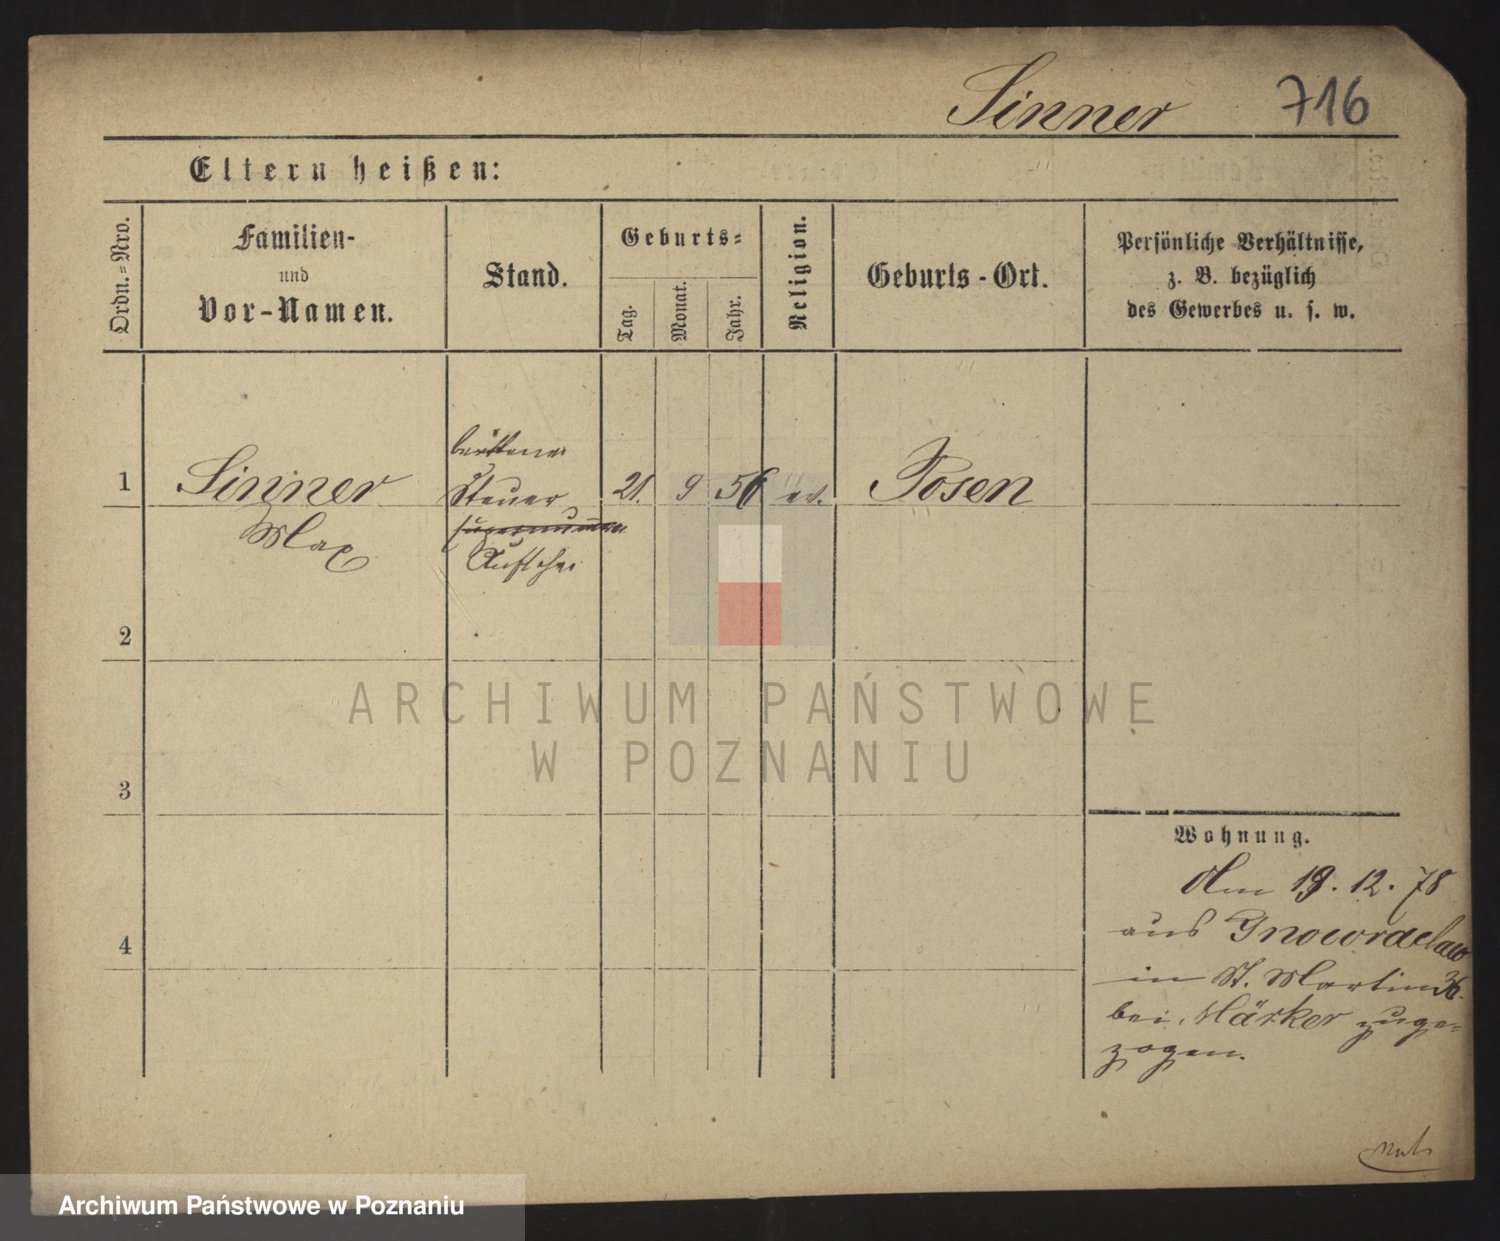 Sinner 716
Eltern heißen:
Ordn.=Nro.
Familien-
und
Vor-Namen.
Stand.
Geburts=
Tag.
Monat.
Jahr.
Religion.
Geburts-Ort.
Persönliche Verhältnisse,
z. B. bezüglich
des Gewerbes u. s. w.
1 Sinner
Max
berittener
Steuer
Aufseher
21. 9 56 ev. Posen
2
3
4
Wohnung.
Am 19. 12. 78
aus Inowraclaw
in St. Martin 36.
bei Märker zuge=
zogen.
ARCHIWUM PAŃSTWOWE
W POZNANIU
Archiwum Państwowe w Poznaniu